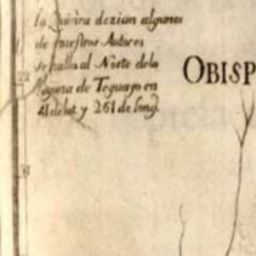 la Quivira dezian algunos
de nuestros Autores
se halla al Norte dela
laguna de Teguayo en
41 de lat. y 261 de long.
OBISP